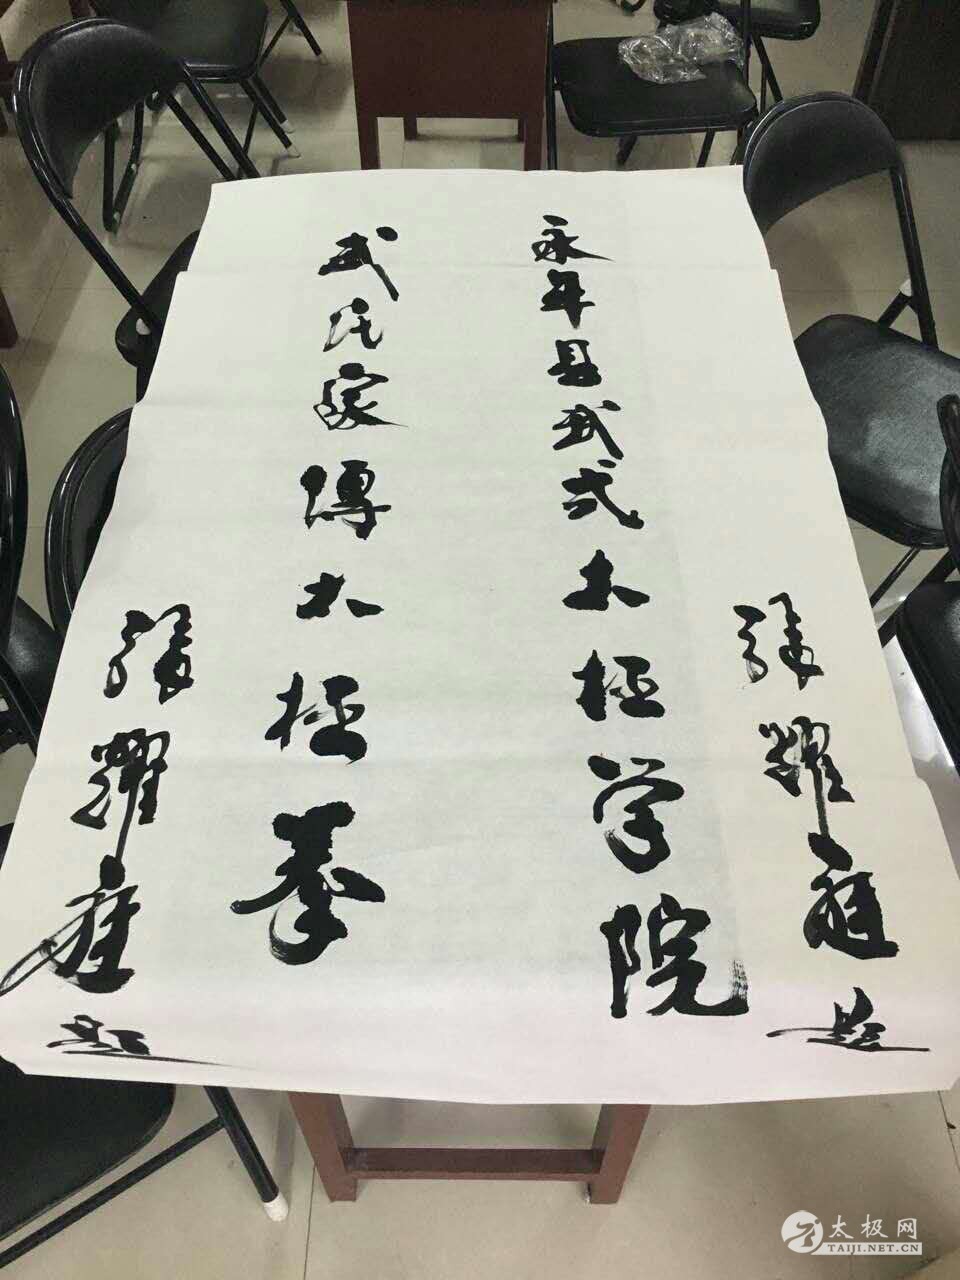 永年县武式太极学院
張耀庭題
武氏家傳太極拳
張耀庭題
太极网
TAIJI.NET.CN